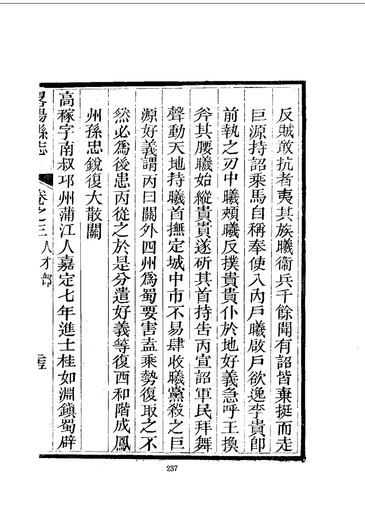 反賊敢抗者夷其族曦衞兵千餘聞有詔皆棄挺而走
巨源持詔乘馬自稱奉使入內戶曦啟戶欲逸李貴卽
前執之刃中曦頰曦反撲貴貴仆於地好義急呼王換
斧其腰曦始縱貴貴遂斫其首持告丙宣詔軍民拜舞
聲動天地持曦首撫定城中市不易肆收曦黨殺之巨
源好義謂丙曰關外四州爲蜀要害盍乘勢復取之不
然必爲後患丙從之於是分遣好義等復西和階成鳳
州孫忠銳復大散關
高稼字南叔邛州蒲江人嘉定七年進士桂如淵鎭蜀辟
畧陽縣志
卷之三人才部
237